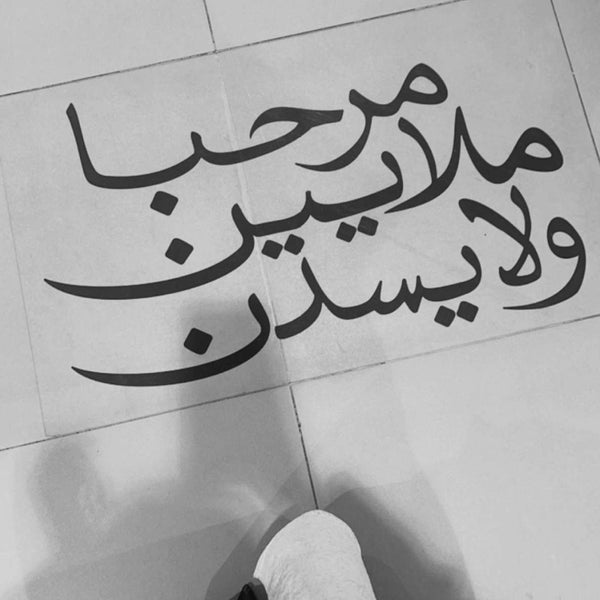 مرحبا
ملايين
ولا يسدن